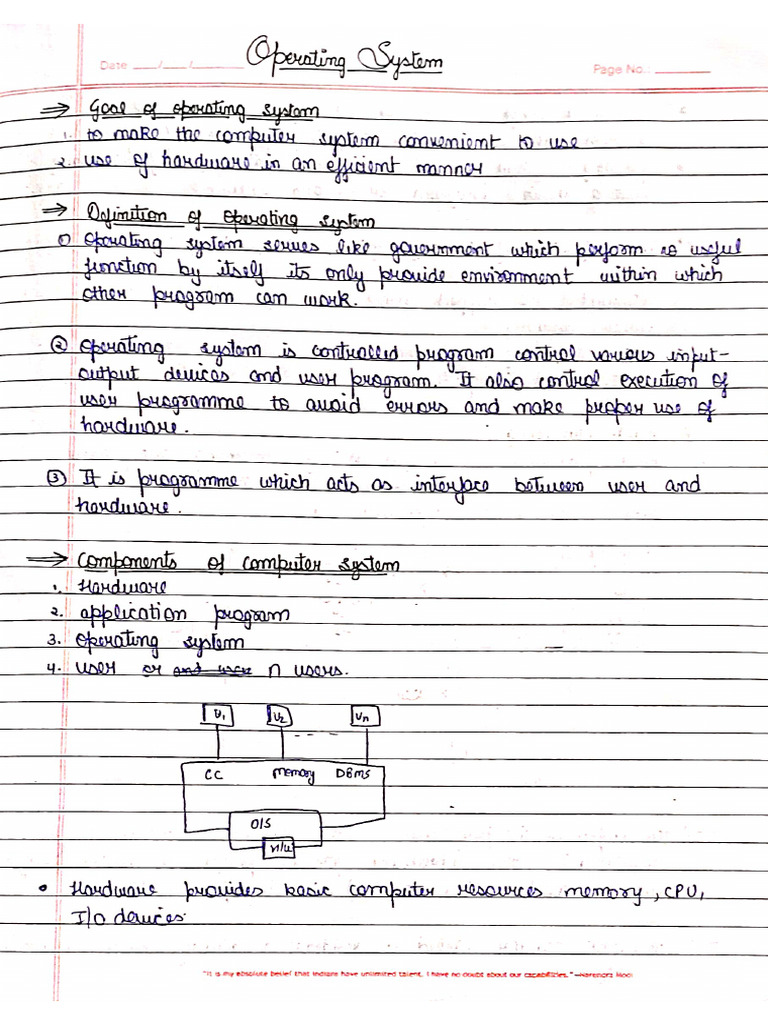 Operating System
Date ___/___/______
Page No.: ______
⇒ Goal of operating system
1. to make the computer system convenient to use
2. use of hardware in an efficient manner
⇒ Definition of operating system
① operating system serves like government which perform no useful
function by itself its only provide environment within which
other program can work.
② operating system is controlled program control various input-
output devices and user program. It also control execution of
user programme to avoid errors and make proper use of
hardware.
③ It is programme which acts as interface between user and
hardware.
⇒ Components of computer system
1. Hardware
2. application program
3. operating system
4. user or and user n users.
U1 U2 Un
CC memory DBMS
O/S
H/W
• Hardware provides basic computer resources memory, CPU,
I/O devices.
"It is my absolute belief that Indians have unlimited talent. I have no doubt about our capabilities." —Narendra Modi